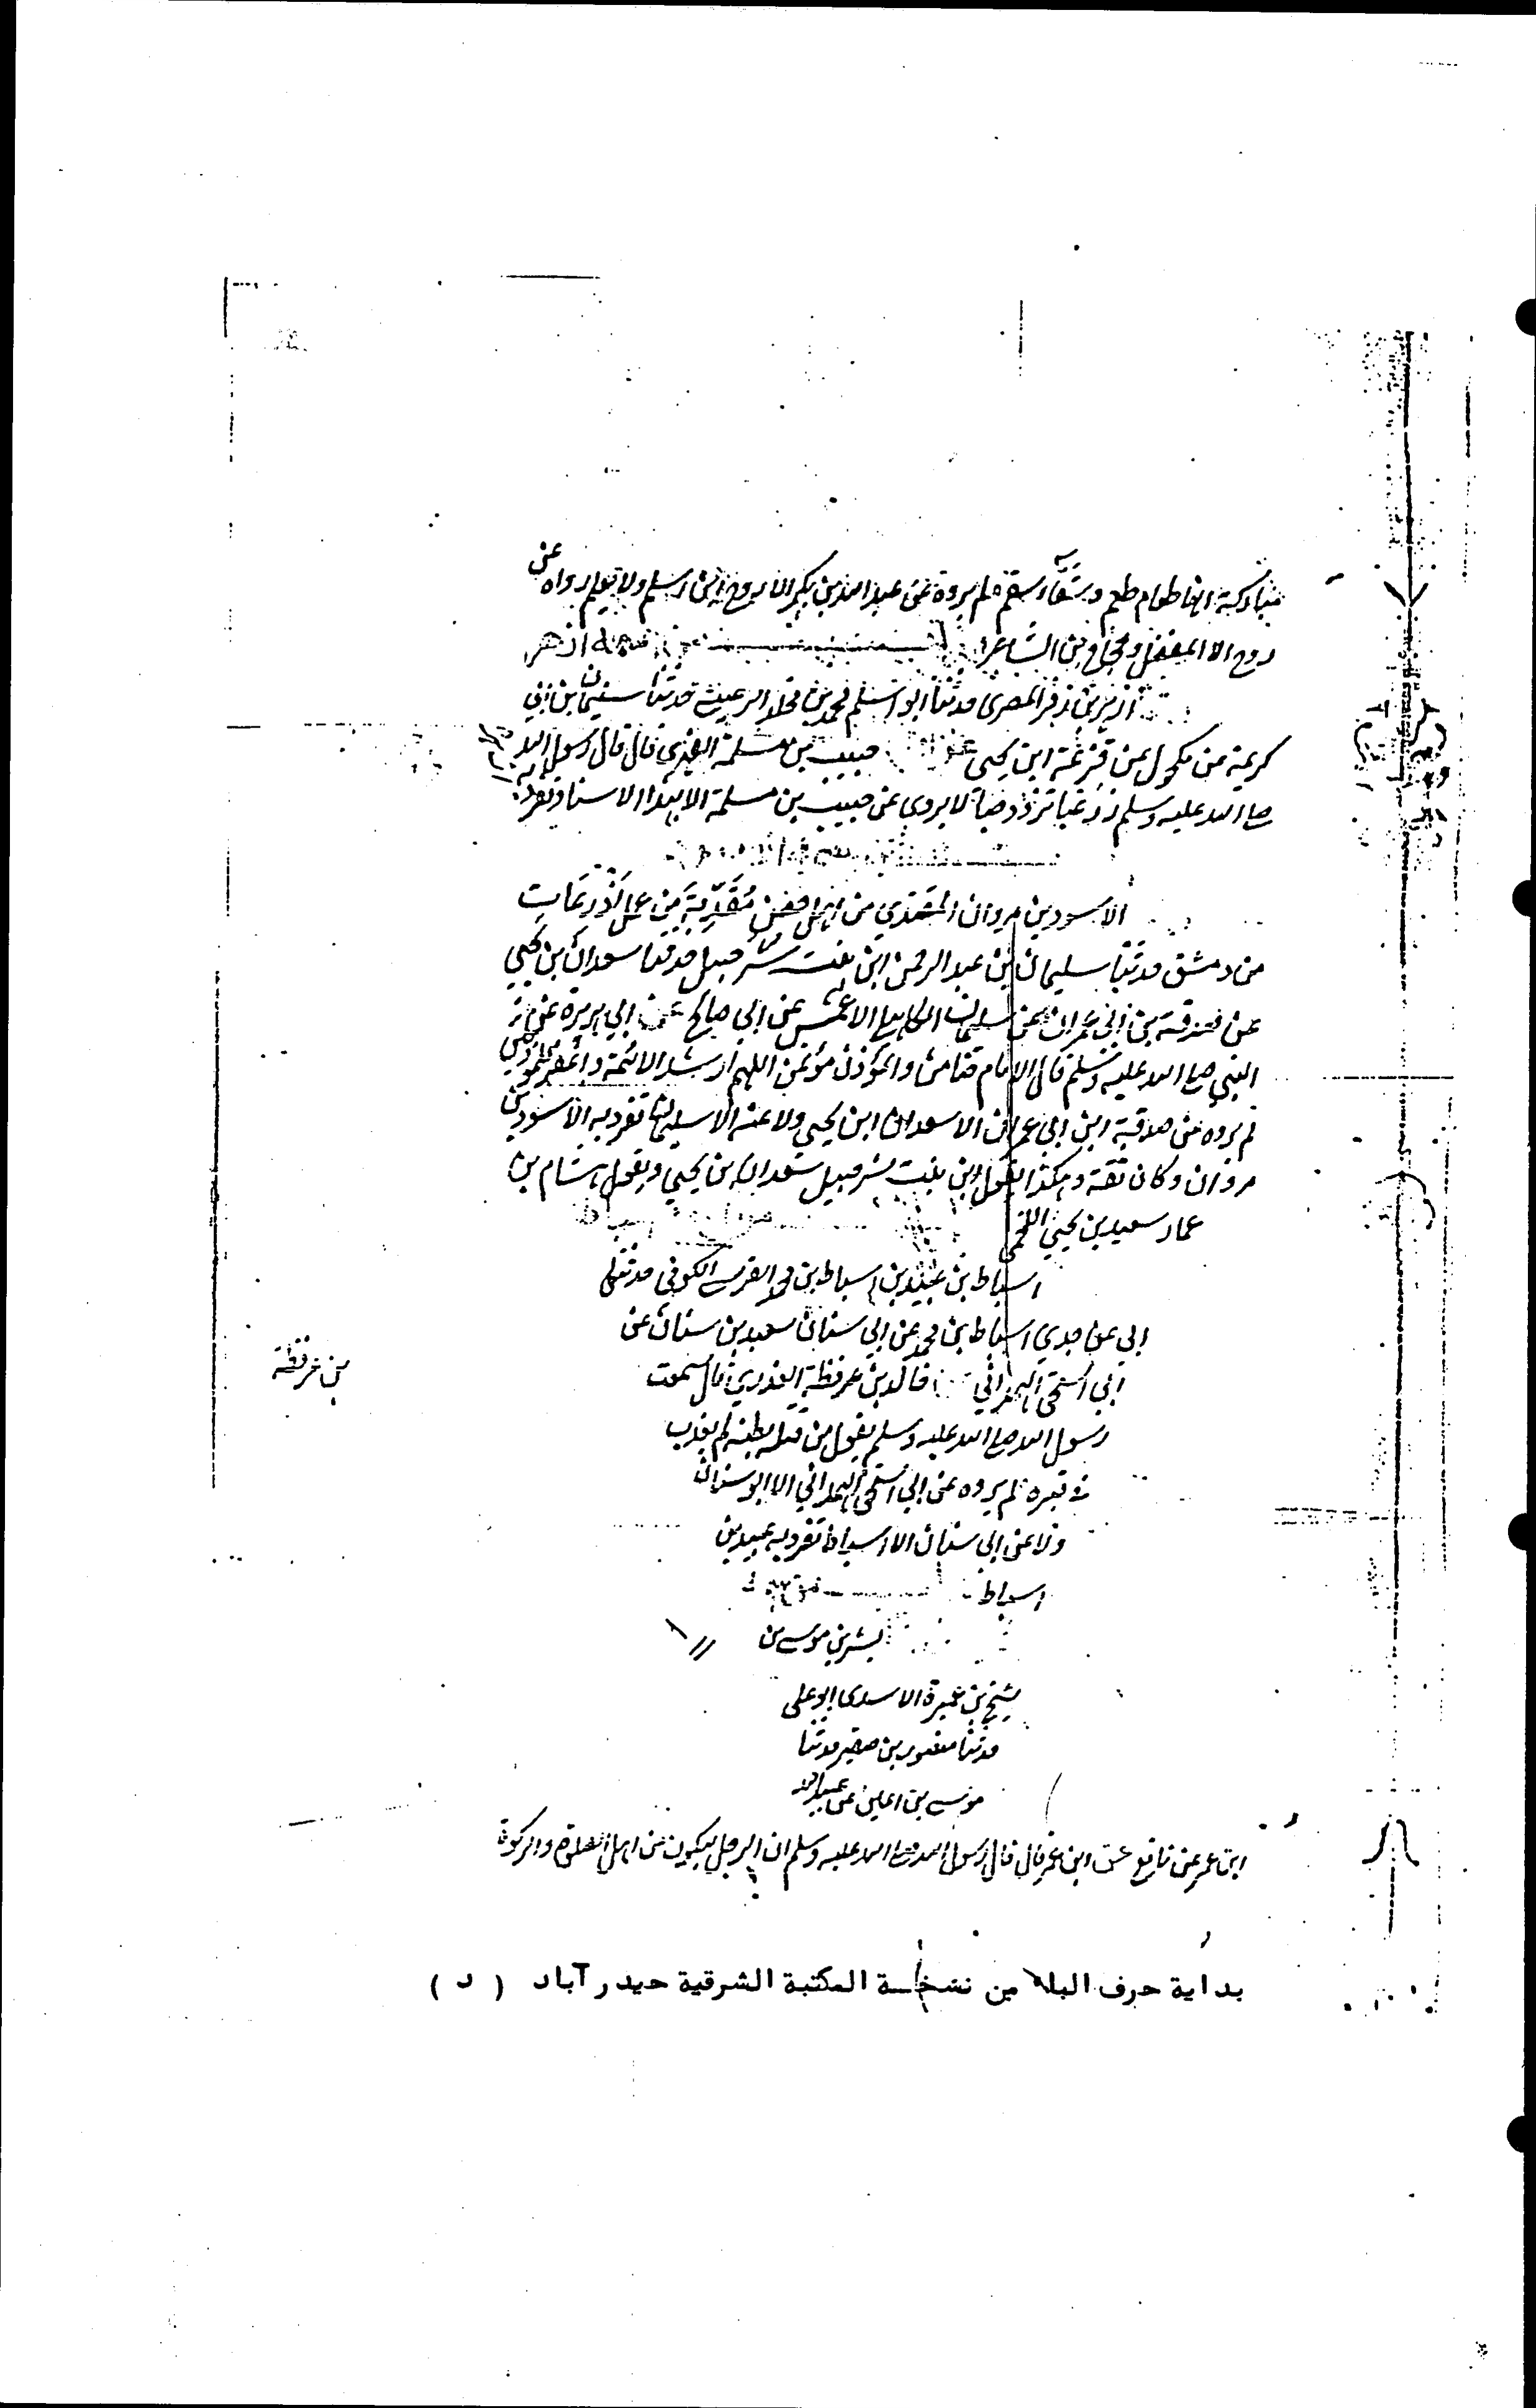 مباركة انها طعام طعم وشفاء سقم لم يروه عن عبد الله بن بكير الا روح بن اسلم ولا نعلم رواه عن
روح الا المفضل وحجاج بن الشاعر
ازهر بن زفر المصري حدثنا ابو اسلم محمد بن مخلد الرعيني حدثنا سليمان بن ابي
كريمة عن مكحول عن قزعة ابن يحيى عن حبيب بن مسلمة الفهري قال قال رسول الله
صلى الله عليه وسلم زر غبا تزدد حبا لا يروى عن حبيب بن مسلمة الا بهذا الاسناد تفرد به
الاسود بن مروان المقدي من اهل حصن مقدية من عمل اذرعات
من دمشق حدثنا سليمان بن عبد الرحمن ابن بنت شرحبيل حدثنا سعدان بن يحيي
عن صدقة بن ابي عمران عن سليمان الاعمش عن ابي صالح عن ابي هريرة عن
النبي صلى الله عليه وسلم قال الامام ضامن والمؤذن مؤتمن اللهم ارشد الائمة واغفر للمؤذنين
لم يروه عن صدقة ابن ابي عمران الا سعدان ابن يحيى ولا عنه الا سليمان تفرد به الاسود بن
مروان وكان ثقة وهكذا يقول ابن بنت شرحبيل سعدان بن يحيي ويقول هشام بن
عمار سعيد بن يحيى اللخمي
اسباط بن عبيد بن اسباط بن محمد القرشي الكوفي حدثنا
ابي عن جدي اسباط بن محمد عن ابي سنان سعيد بن سنان عن
ابي اسحق الهمداني خالد بن عرفطة العذري قال سمعت
بن عرفطة
رسول الله صلى الله عليه وسلم يقول من قتله بطنه لم يعذب
في قبره لم يروه عن ابي اسحق الهمداني الا ابو سنان
ولا عن ابي سنان الا اسباط تفرد به عبيد بن
اسباط
بشر بن موسى بن
شيخ بن عميرة الاسدي ابو علي
حدثنا منصور بن صقير حدثنا
موسى بن اعين عن عبيد الله
ابن عمر عن نافع عن ابن عمر قال قال رسول الله صلى الله عليه وسلم ان الرجل ليكون من اهل الصلوة والزكوة
بداية حرف الباء من نسخة المكتبة الشرقية حيدر آباد ( د )